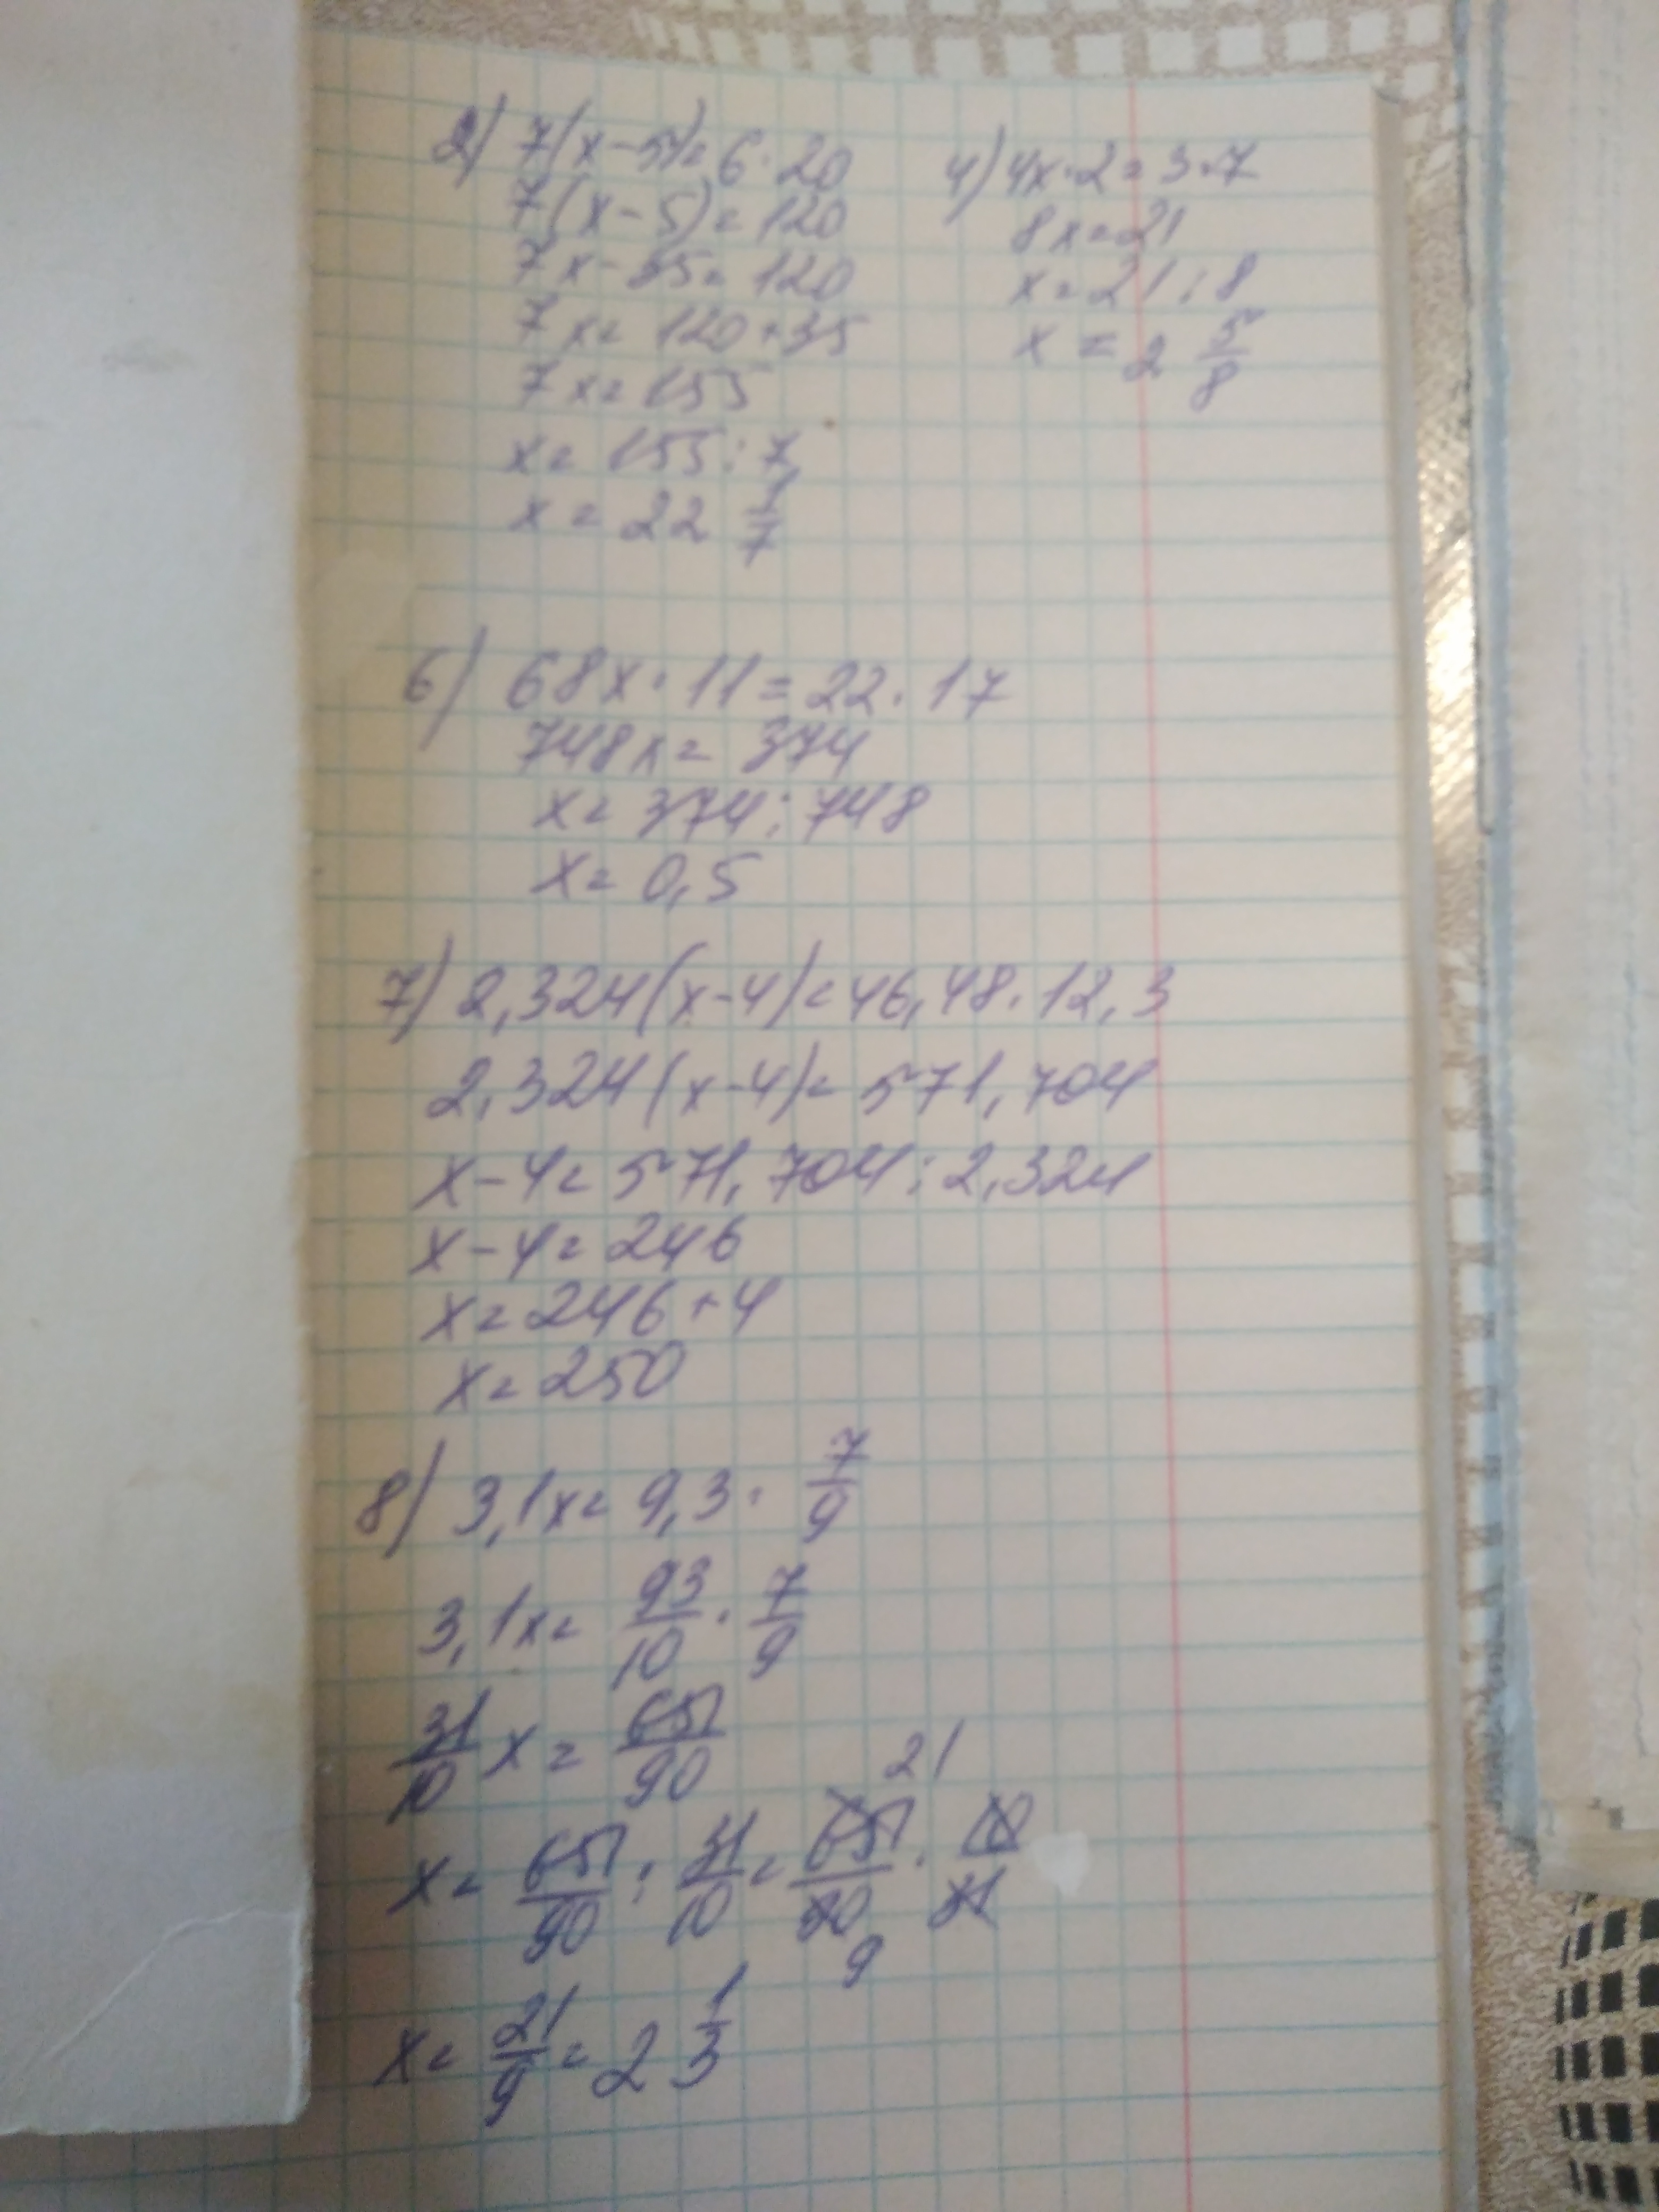 2) 7(x-5)=6·20
7(x-5)=120
7x-35=120
7x=120+35
7x=155
x=155:7
x=22 1/7
4) 4x·2=3·7
8x=21
x=21:8
x=2 5/8
6) 68x·11=22·17
748x=374
x=374:748
x=0,5
7) 2,324(x-4)=46,48·12,3
2,324(x-4)=571,704
x-4=571,704:2,324
x-4=246
x=246+4
x=250
8) 3,1x=9,3·7/9
3,1x=93/10·7/9
31/10 x=651/90
21
x=651/90:31/10=651/90·10/31
9
x=21/9=2 1/3